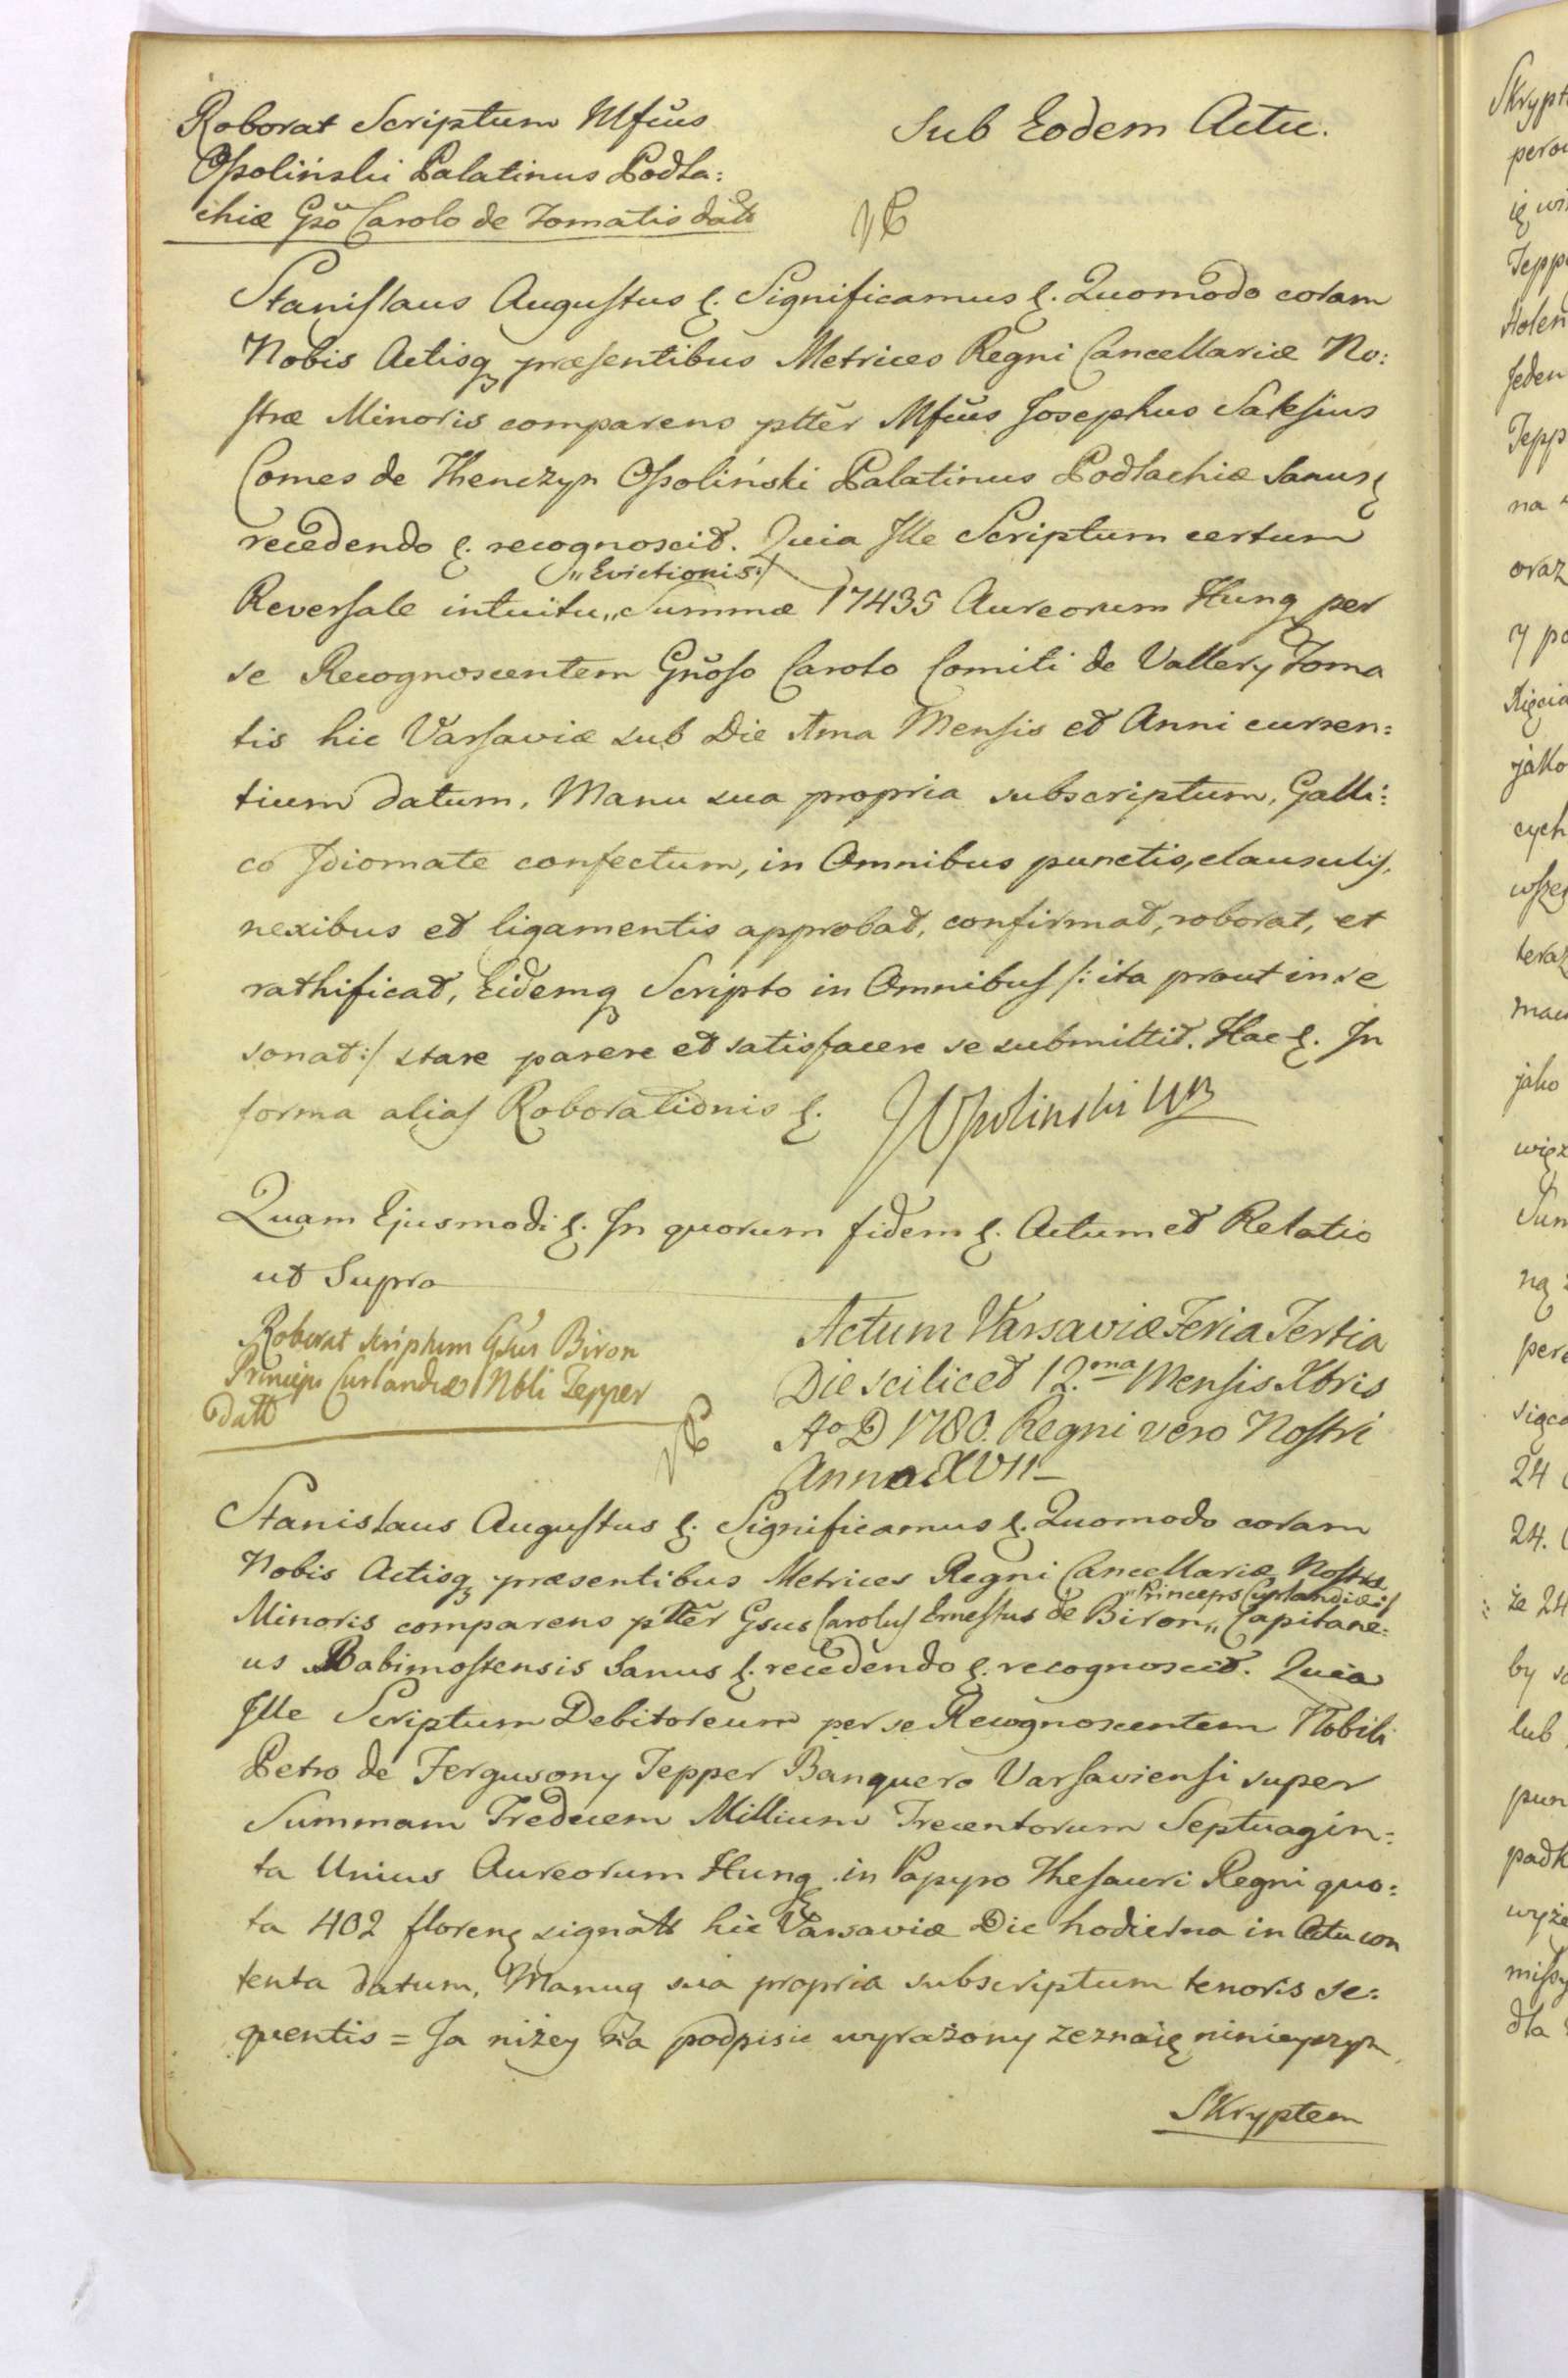 Roborat Scriptum Mfcus
Ossoliński Palatinus Podla:
chiæ Gso Carolo de Tomatis datt
Sub Eodem Actu.
Stanislaus Augustus &. Significamus &. Quomodo coram
Nobis Actisq præsentibus Metrices Regni Cancellariæ No:
stræ Minoris comparens ptter Mfcus Josephus Saksius
Comes de Thenczyn Ossoliński Palatinus Podlachiæ Sanus &
recedendo &. recognoscit. Quia Ille Scriptum certum
„Evictionis:/
Reversale intuitu„ Summæ 17435 Aureorum Hung per
se Recognoscentem Gnoso Carolo Comiti de Vallery Toma
tis hic Varsaviæ sub Die Ama Mensis et Anni curren:
tium datum, Manu sua propria subscriptum, Galli:
co Idiomate confectum, in Omnibus punctis, clausulis,
nexibus et ligamentis approbat, confirmat, roborat, et
rathificat, Eidemq Scripto in Omnibus /: ita prout in se
sonat:/ stare parere et satisfacere se submittit. Hac &. In
forma alias Roborationis &. JOssolinski WP
Quam Ejusmodi &. In quorum fidem &. Actum et Relatio
ut Supra
Roborat scriptum Gsus Biron
Princeps Curlandiæ Nbli Tepper
datt
Actum Varsaviæ Feria Tertia
Die scilicet 12.ma Mensis Xbris
Ao D 1780. Regni vero Nostri
Anno XVII
Stanislaus Augustus &. Significamus &. Quomodo coram
Nobis Actisq præsentibus Metrices Regni Cancellariæ Nostræ
„Princeps Curlandiæ:/
Minoris comparens ptter Gsus Carolus Ernestus de Biron„ Capitane:
us Babimostensis Sanus &. recedendo &. recognoscit. Quia
Ille Scriptum Debitoreum per se Recognoscentem Nobili
Petro de Fergusony Tepper Banquero Varsaviensi super
Summam Tredecem Millium Trecentorum Septuagin:
ta Unius Aureorum Hung. in Papyro Thesauri Regni quo:
ta 402 floreng signatt hic Varsaviæ Die hodierna in Actu con
tenta datum, Manuq sua propria subscriptum tenoris se:
quentis = Ja niżey na podpisie wyrażony zeznaię ninieyszym
Skryptem